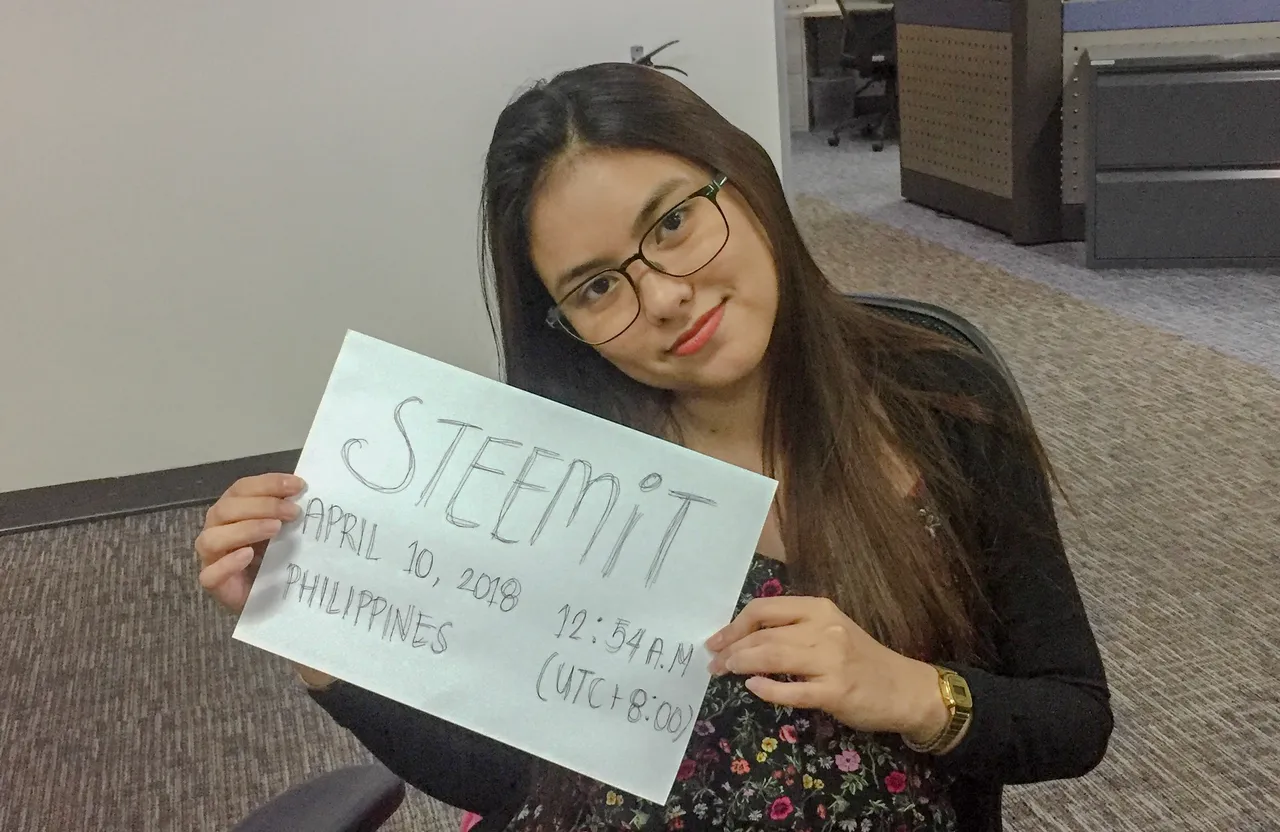 STEEMiT
APRIL 10, 2018 12:54 A.M
PHILIPPINES (UTC+8:00)